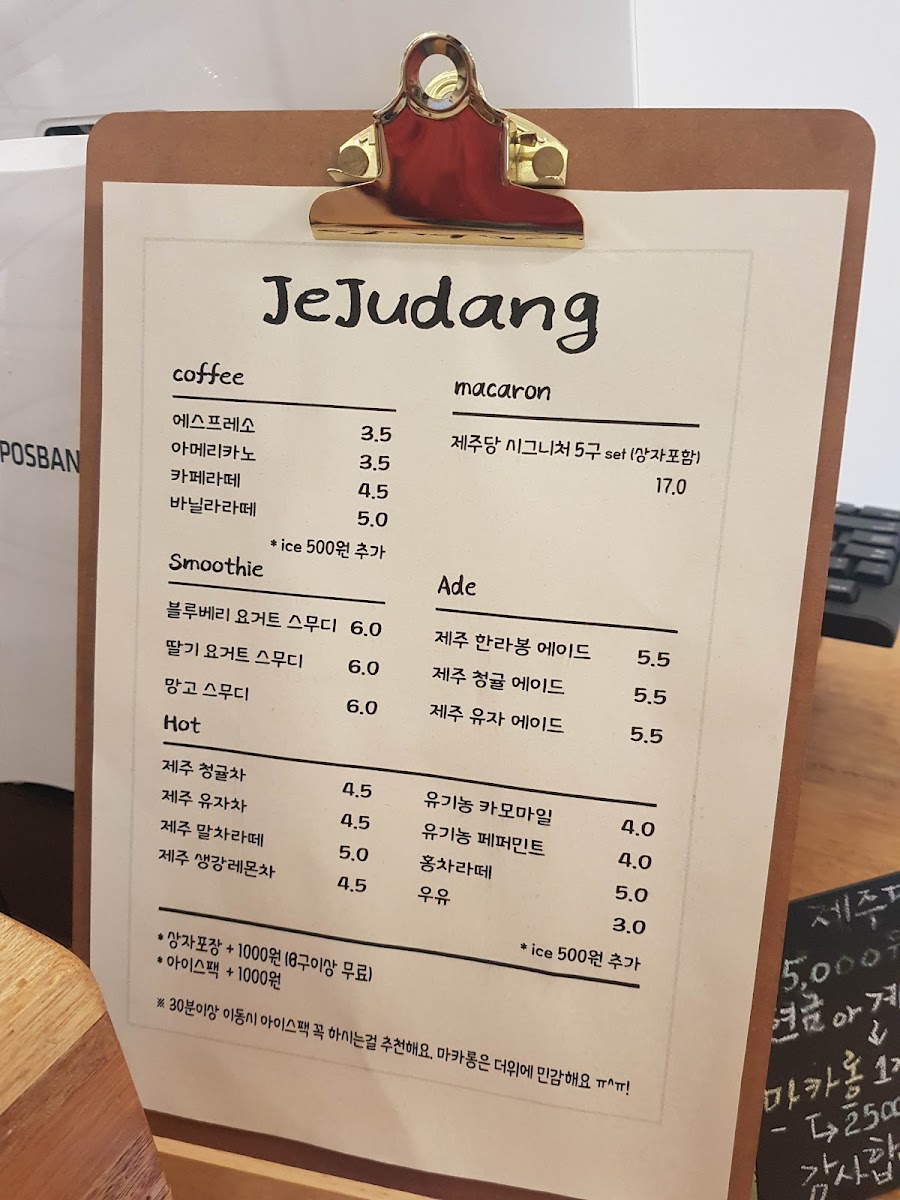 JeJudang
coffee
에스프레소 3.5
아메리카노 3.5
카페라떼 4.5
바닐라라떼 5.0
* ice 500원 추가
macaron
제주당 시그니처 5구 set (상자포함)
17.0
Smoothie
블루베리 요거트 스무디 6.0
딸기 요거트 스무디 6.0
망고 스무디 6.0
Ade
제주 한라봉 에이드 5.5
제주 청귤 에이드 5.5
제주 유자 에이드 5.5
Hot
제주 청귤차 4.5
제주 유자차 4.5
제주 말차라떼 5.0
제주 생강레몬차 4.5
유기농 카모마일 4.0
유기농 페퍼민트 4.0
홍차라떼 5.0
우유 3.0
* ice 500원 추가
* 상자포장 + 1000원 (6구이상 무료)
* 아이스팩 + 1000원
※ 30분이상 이동시 아이스팩 꼭 하시는걸 추천해요. 마카롱은 더위에 민감해요 ㅠ^ㅠ!
POSBAN
제주
5,000
현금 or 계
마카롱 1
↳ 2500
감사합